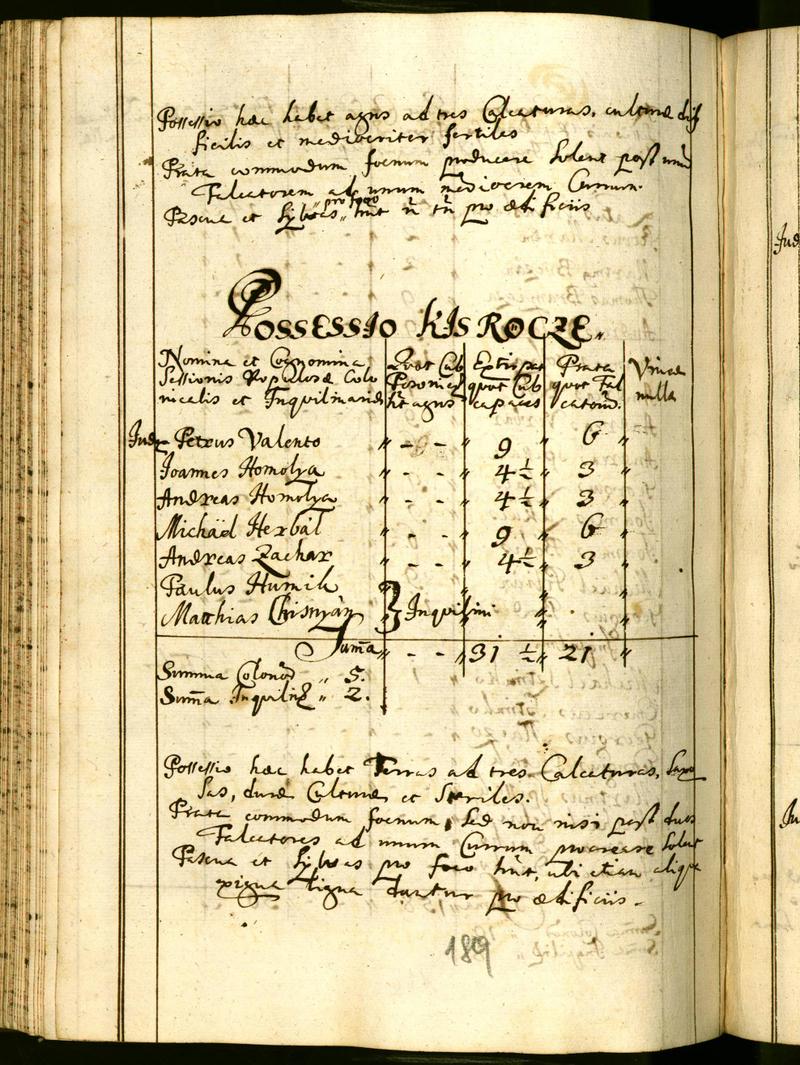 Possessio hæc habet agros ad tres Calcaturas, culturæ dif
ficilis et mediocriter fertiles
Prata commodum foenum producere solent post unū
Falcatorem ad unum mediocrem Currum.
Pascua et Sylvas pro foco hn̄t n̄ tn̄ pro ædificiis
POSSESSIO KIS ROCZE
Nomina et Cognomina
Sessionis Populosæ Colo
nicalis et Inquilinariæ
Quot Cub
Posonien
hn̄t agros
Extirpat
quot Cub
capaces
Prata
quot Fal
catorū.
Vineæ
nulla
Judx Petrus Valento " - - " 9 " 6 "
Joannes Homolya " - - " 4 ½ " 3 "
Andreas Homolya " - - " 4 ½ " 3 "
Michäel Herbál " - - " 9 " 6 "
Andreas Zachar " - - " 4 ½ " 3 "
Paulus Humili
Matthias Chismyàn } Inquilini
Sum̄a " - - " 31 ½ " 21 "
Summa Colonor " 5.
Sum̄a Inquilin " 2.
Possessio hæc habet Terras ad tres Calcaturas, Saxo
sas, duræ Culturæ et Steriles.
Prata commodum foenum, sed non nisi post duos
Falcatores ad unum Currum procreare solent
Pascua et Sylvas pro foco hn̄t, ubi etiam aliqua
exigua ligna dantur pro ædificiis.
189